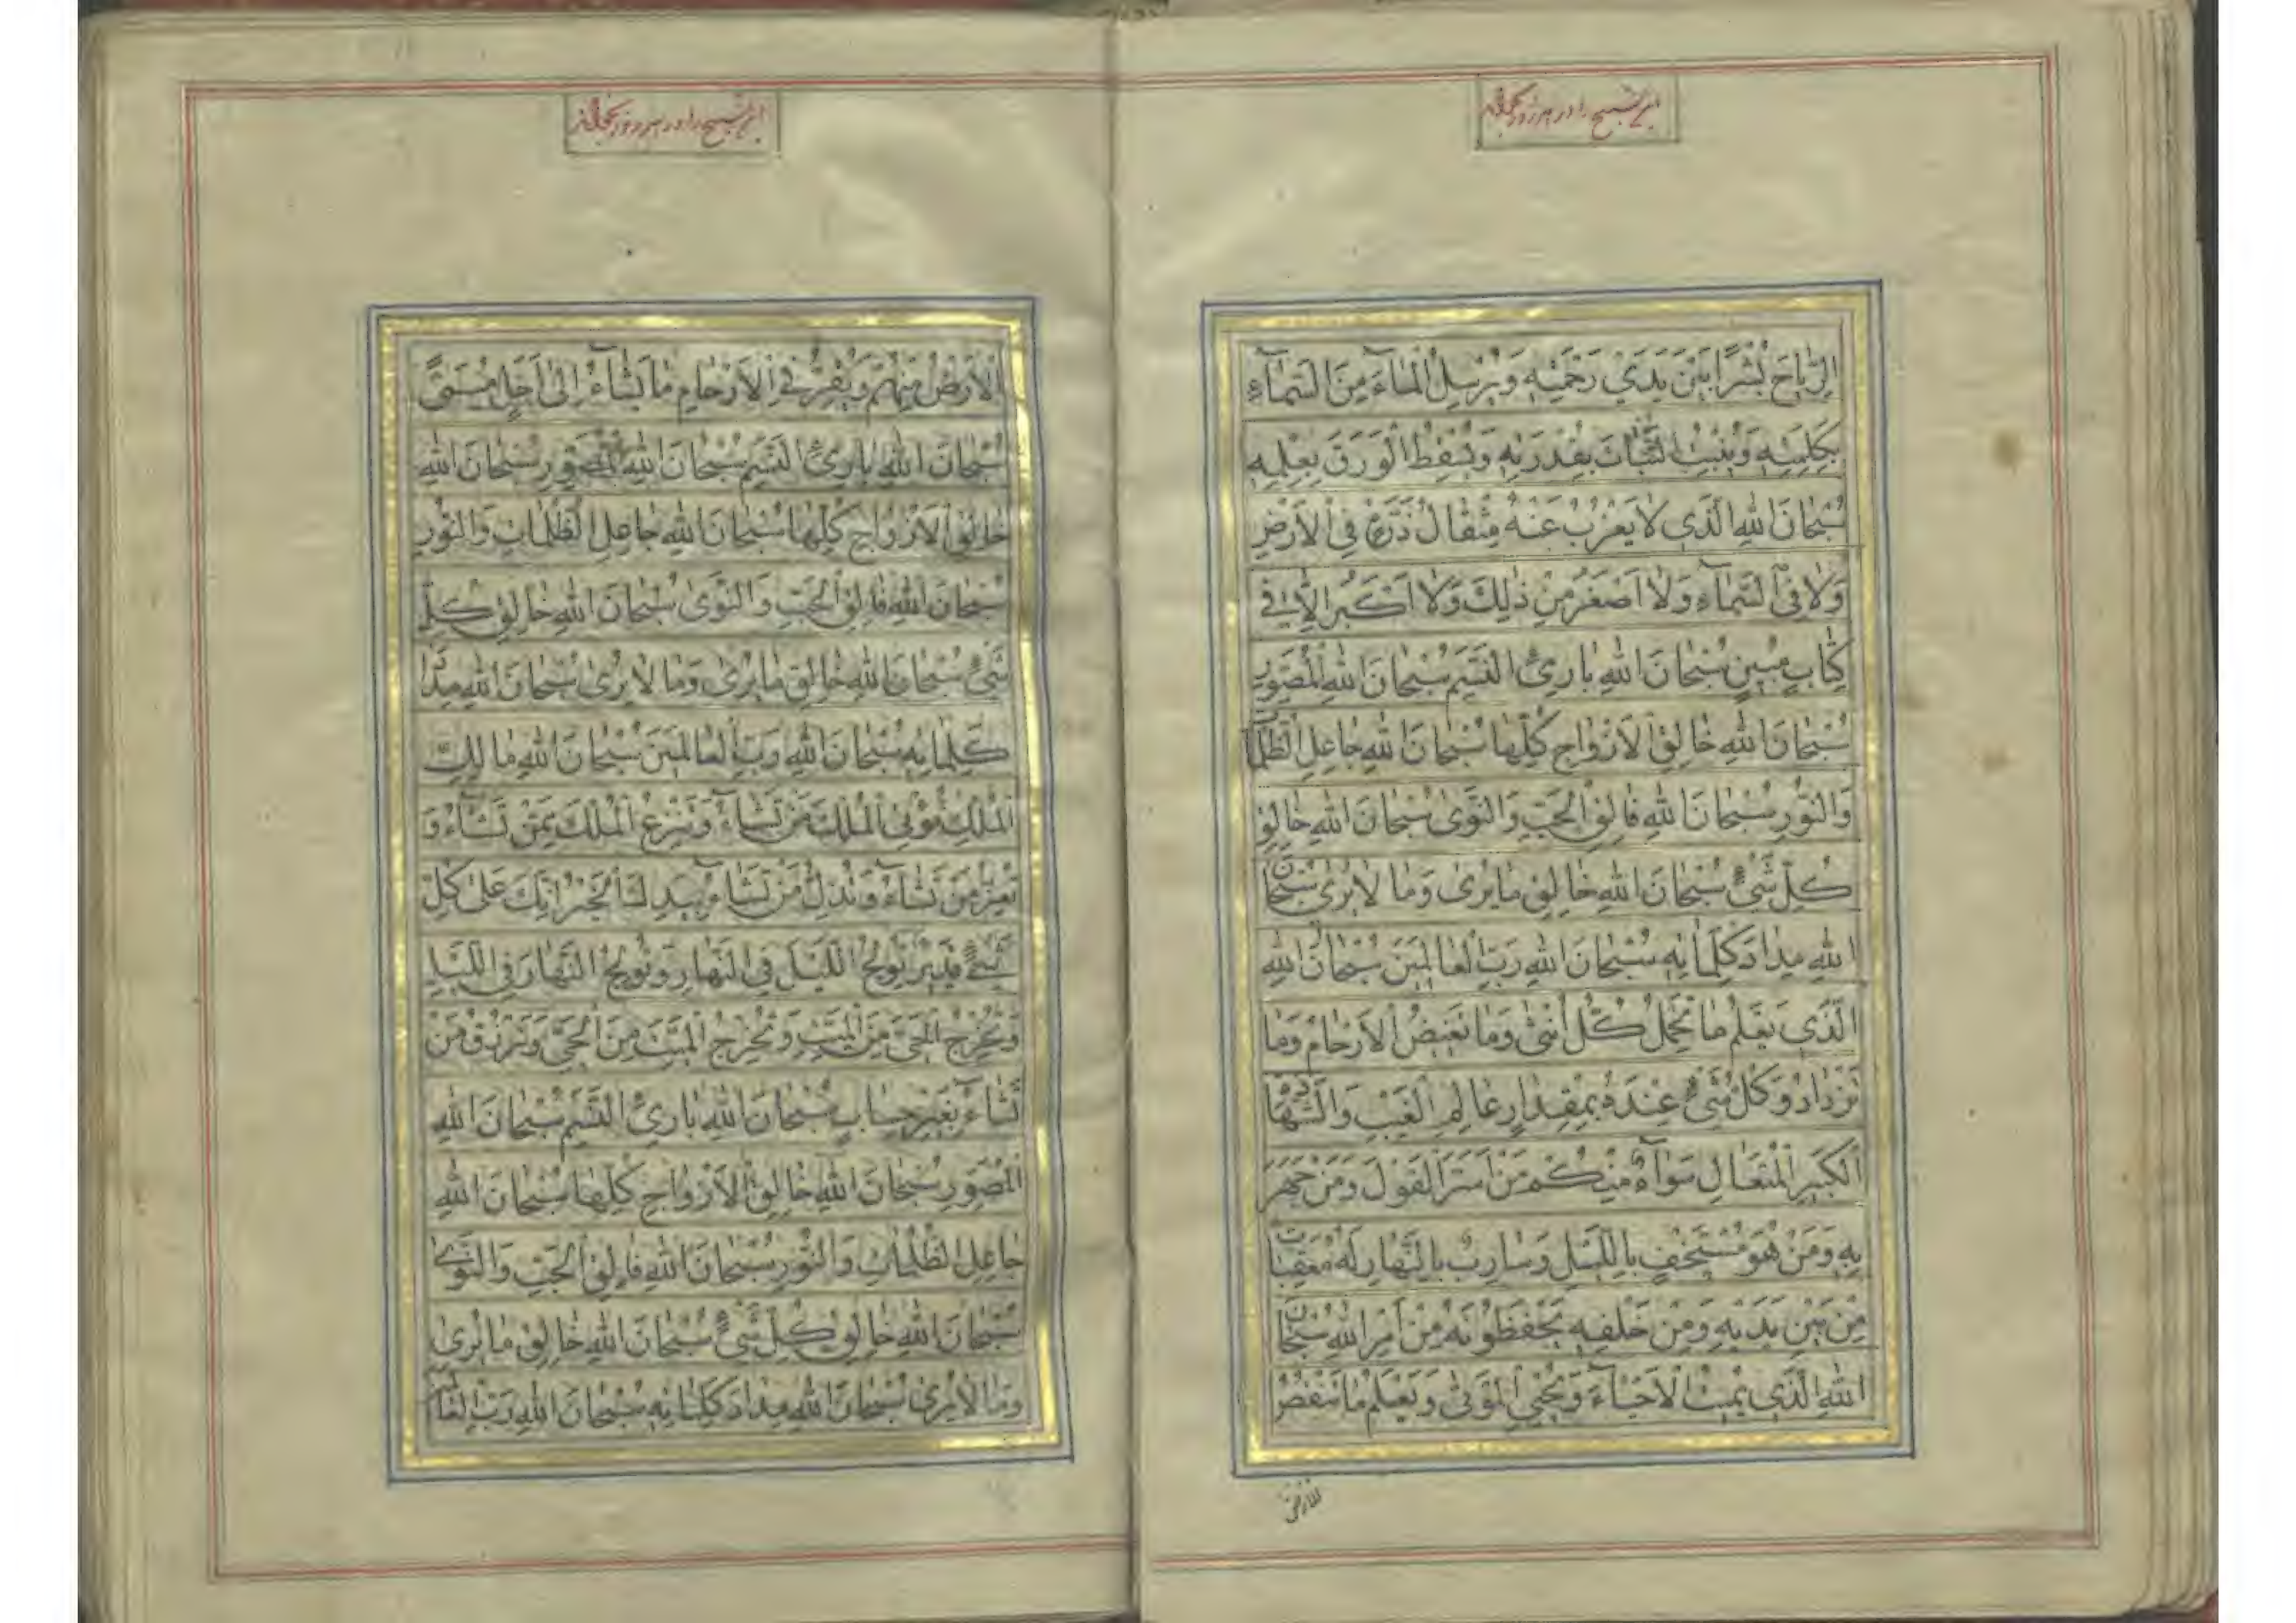 این تسبیح را در هر روز بخواند
الرِّيَاحَ بُشْرًا بَيْنَ يَدَيْ رَحْمَتِهِ وَيُرْسِلُ الْمَاءَ مِنَ السَّمَاءِ
بِكَلِمَتِهِ وَيُنْبِتُ النَّبَاتَ بِقُدْرَتِهِ وَيُسْقِطُ الْوَرَقَ بِعِلْمِهِ
سُبْحَانَ اللهِ الَّذِي لَا يَعْزُبُ عَنْهُ مِثْقَالُ ذَرَّةٍ فِي الْأَرْضِ
وَلَا فِي السَّمَاءِ وَلَا أَصْغَرُ مِنْ ذٰلِكَ وَلَا أَكْبَرُ إِلَّا فِي
كِتَابٍ مُبِينٍ سُبْحَانَ اللهِ بَارِئِ النَّسَمِ سُبْحَانَ اللهِ الْمُصَوِّرِ
سُبْحَانَ اللهِ خَالِقِ الْأَزْوَاجِ كُلِّهَا سُبْحَانَ اللهِ جَاعِلِ الظُّلُمَاتِ
وَالنُّورِ سُبْحَانَ اللهِ فَالِقِ الْحَبِّ وَالنَّوَى سُبْحَانَ اللهِ خَالِقِ
كُلِّ شَيْءٍ سُبْحَانَ اللهِ خَالِقِ مَا يُرَى وَمَا لَا يُرَى سُبْحَانَ
اللهِ مِدَادَ كَلِمَاتِهِ سُبْحَانَ اللهِ رَبِّ الْعَالَمِينَ سُبْحَانَ اللهِ
الَّذِي يَعْلَمُ مَا تَحْمِلُ كُلُّ أُنْثَى وَمَا تَغِيضُ الْأَرْحَامُ وَمَا
تَزْدَادُ وَكُلُّ شَيْءٍ عِنْدَهُ بِمِقْدَارٍ عَالِمِ الْغَيْبِ وَالشَّهَادَةِ
الْكَبِيرِ الْمُتَعَالِ سَوَاءٌ مِنْكُمْ مَنْ أَسَرَّ الْقَوْلَ وَمَنْ جَهَرَ
بِهِ وَمَنْ هُوَ مُسْتَخْفٍ بِاللَّيْلِ وَسَارِبٌ بِالنَّهَارِ لَهُ مُعَقِّبَاتٌ
مِنْ بَيْنِ يَدَيْهِ وَمِنْ خَلْفِهِ يَحْفَظُونَهُ مِنْ أَمْرِ اللهِ سُبْحَانَ
اللهِ الَّذِي يُمِيتُ الْأَحْيَاءَ وَيُحْيِي الْمَوْتَى وَيَعْلَمُ مَا تَنْقُصُ
الارض
این تسبیح را در هر روز بخواند
الْأَرْضُ مِنْهُمْ وَيُقِرُّ فِي الْأَرْحَامِ مَا يَشَاءُ إِلَى أَجَلٍ مُسَمًّى
سُبْحَانَ اللهِ بَارِئِ النَّسَمِ سُبْحَانَ اللهِ الْمُصَوِّرِ سُبْحَانَ اللهِ
خَالِقِ الْأَزْوَاجِ كُلِّهَا سُبْحَانَ اللهِ جَاعِلِ الظُّلُمَاتِ وَالنُّورِ
سُبْحَانَ اللهِ فَالِقِ الْحَبِّ وَالنَّوَى سُبْحَانَ اللهِ خَالِقِ كُلِّ
شَيْءٍ سُبْحَانَ اللهِ خَالِقِ مَا يُرَى وَمَا لَا يُرَى سُبْحَانَ اللهِ مِدَادَ
كَلِمَاتِهِ سُبْحَانَ اللهِ رَبِّ الْعَالَمِينَ سُبْحَانَ اللهِ مَالِكِ
الْمُلْكِ تُؤْتِي الْمُلْكَ مَنْ تَشَاءُ وَتَنْزِعُ الْمُلْكَ مِمَّنْ تَشَاءُ وَ
تُعِزُّ مَنْ تَشَاءُ وَتُذِلُّ مَنْ تَشَاءُ بِيَدِكَ الْخَيْرُ إِنَّكَ عَلَى كُلِّ
شَيْءٍ قَدِيرٌ تُولِجُ اللَّيْلَ فِي النَّهَارِ وَتُولِجُ النَّهَارَ فِي اللَّيْلِ
وَتُخْرِجُ الْحَيَّ مِنَ الْمَيِّتِ وَتُخْرِجُ الْمَيِّتَ مِنَ الْحَيِّ وَتَرْزُقُ مَنْ
تَشَاءُ بِغَيْرِ حِسَابٍ سُبْحَانَ اللهِ بَارِئِ النَّسَمِ سُبْحَانَ اللهِ
الْمُصَوِّرِ سُبْحَانَ اللهِ خَالِقِ الْأَزْوَاجِ كُلِّهَا سُبْحَانَ اللهِ
جَاعِلِ الظُّلُمَاتِ وَالنُّورِ سُبْحَانَ اللهِ فَالِقِ الْحَبِّ وَالنَّوَى
سُبْحَانَ اللهِ خَالِقِ كُلِّ شَيْءٍ سُبْحَانَ اللهِ خَالِقِ مَا يُرَى
وَمَا لَا يُرَى سُبْحَانَ اللهِ مِدَادَ كَلِمَاتِهِ سُبْحَانَ اللهِ رَبِّ الْعَالَمِينَ